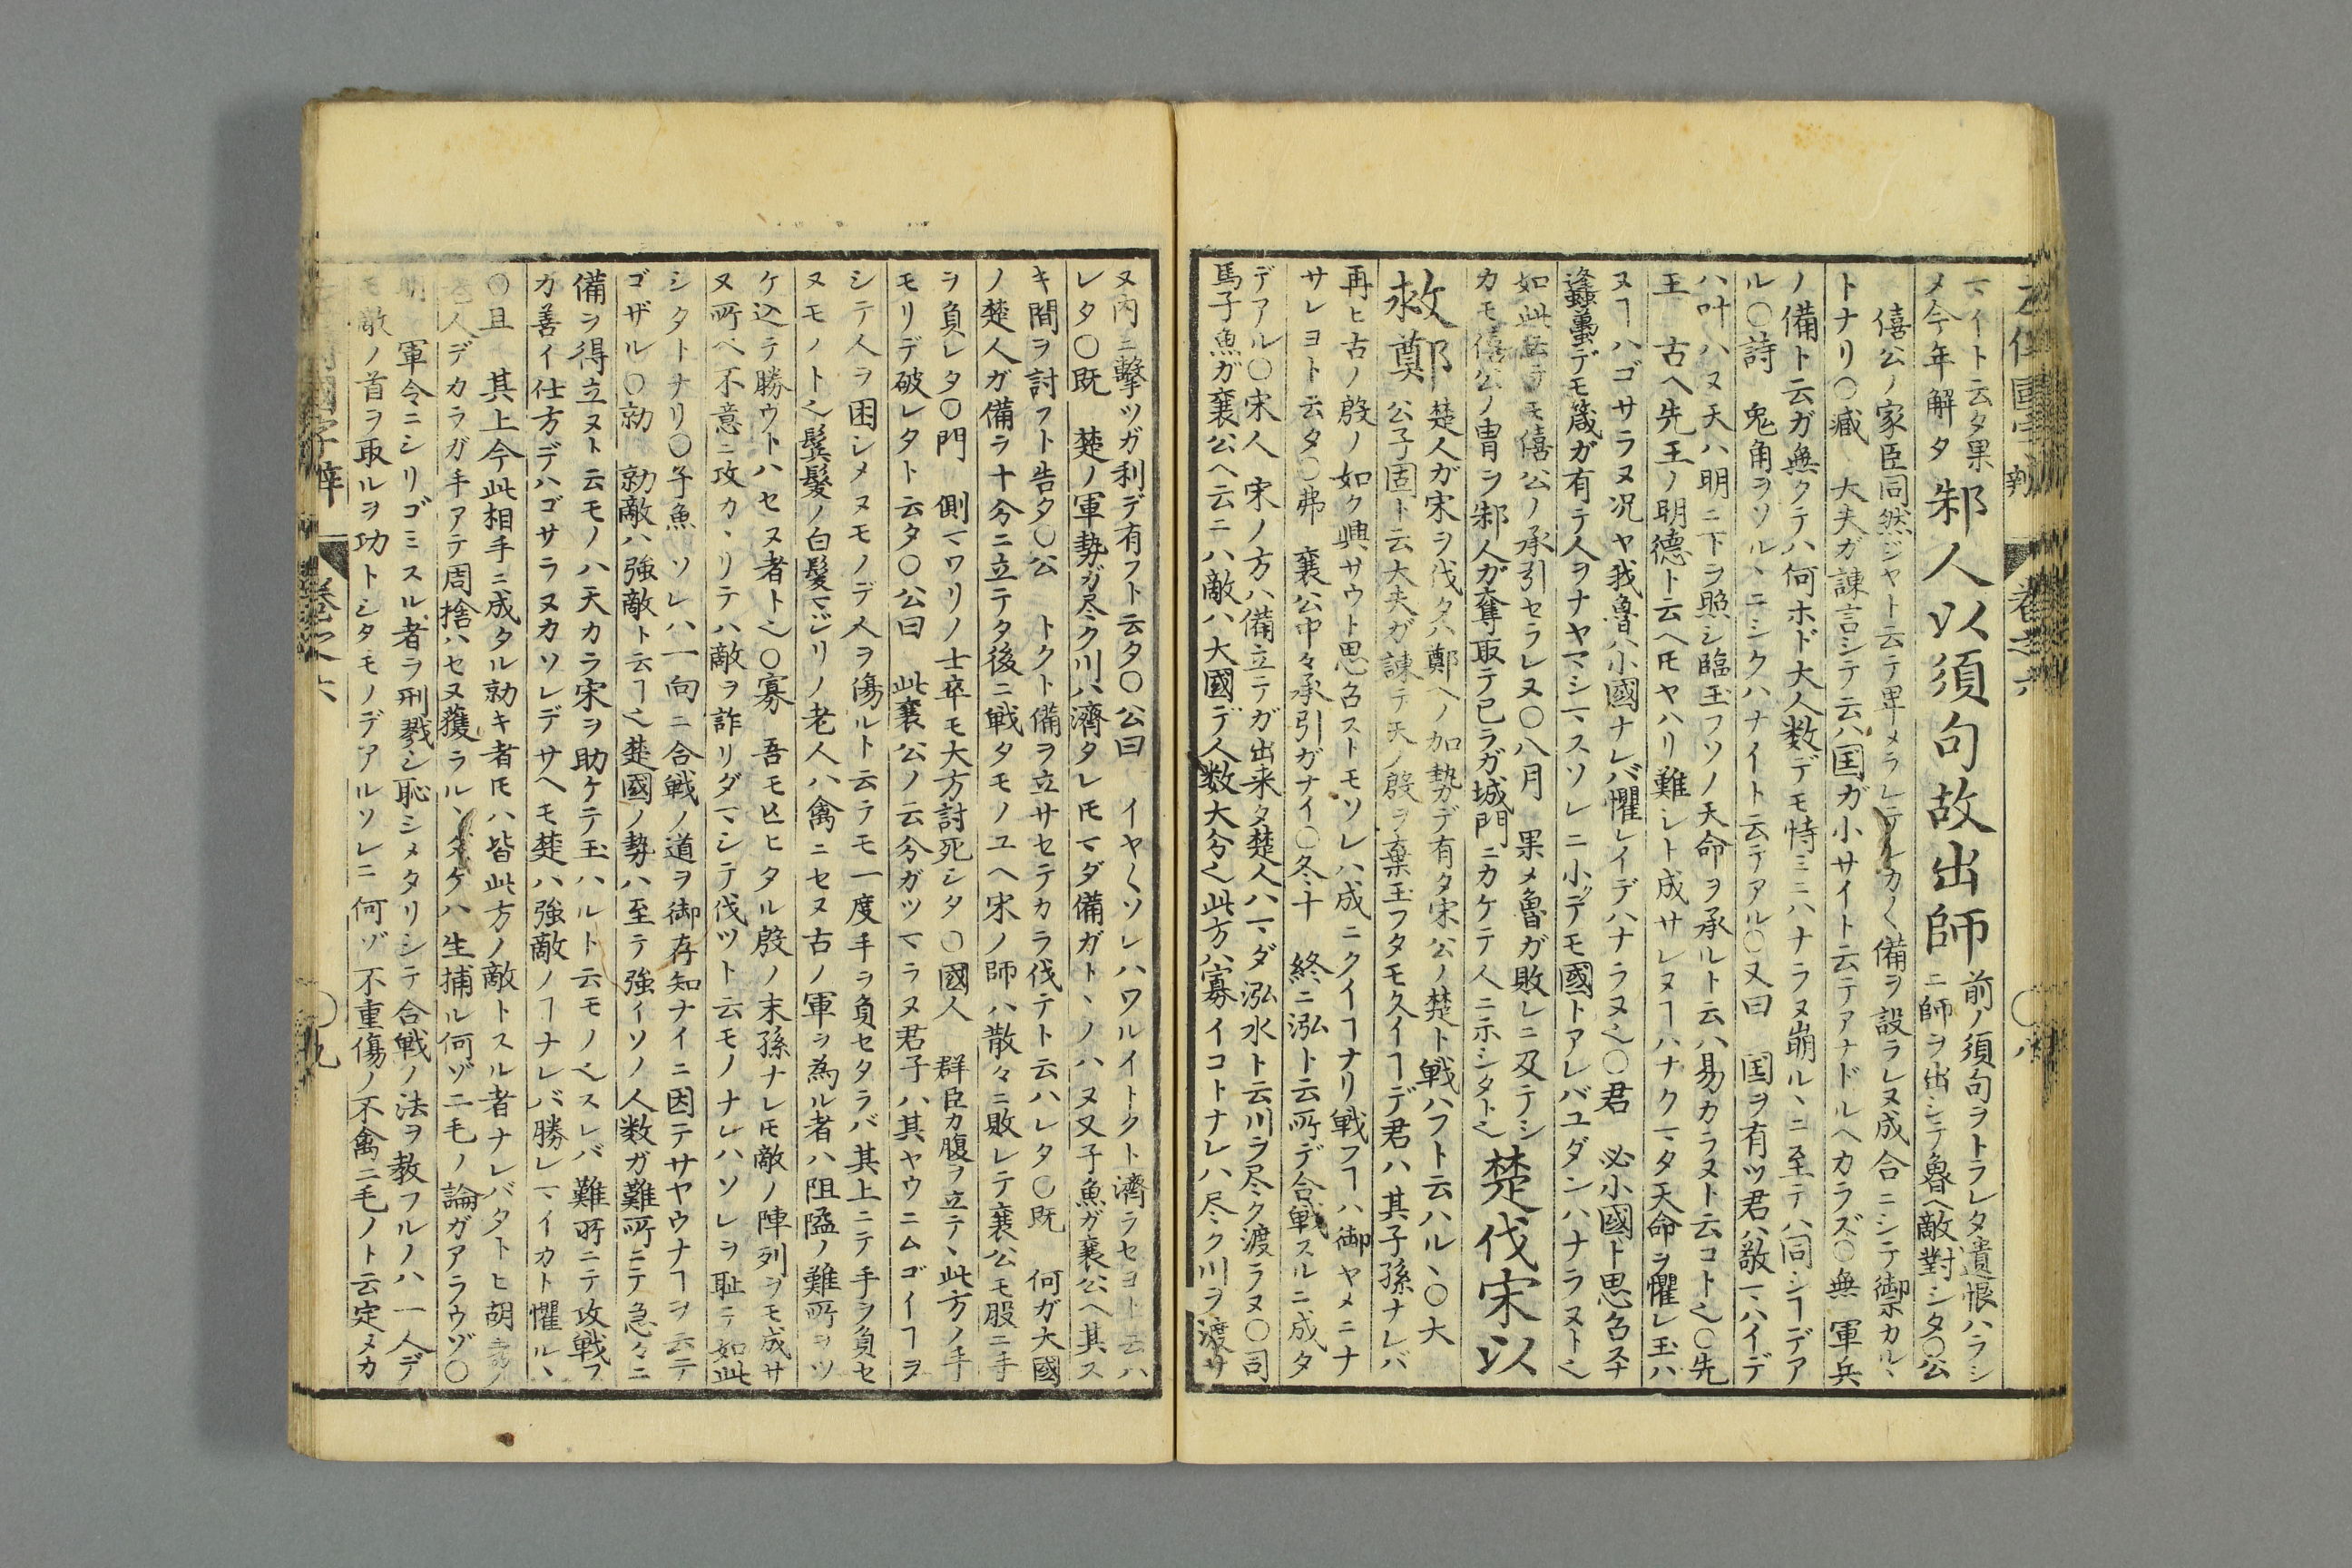 左傳國字辨 巻之六 ○八
マイト云タ果
メ今年解タ
邾人以須句故出師
前ノ須句ヲトラレタ遺恨ハラシ
ニ師ヲ出シテ魯ヘ敵對シタ○公
僖公ノ家臣同然ジヤト云テ卑メラレテ 備ヲ設ラレヌ成合ニシテ御禦カル丶
トナリ○臧 大夫ガ諫言シテ云ハ国ガ小サイト云テアナドルヘカラズ○無 軍兵
ノ備ト云ガ無クテハ何ホド大人数デモ恃ミニハナラヌ崩ル丶ニ至テハ同シヿデア
ル○詩 兎角ヲソル丶ニシクハナイト云デアル○又曰 国ヲ有ツ君ハ敬マハイデ
ハ叶ハヌ天ハ明ニ下ヲ照シ臨玉フソノ天命ヲ承ルト云ハ易カラヌト云コト也○先
王 古ヘ先王ノ明德ト云ヘ𪜈ヤハリ難シト成サレヌヿハナクマタ天命ヲ懼レ玉ハ
ヌヿハゴサラヌ況ヤ我魯ハ小國ナレバ懼レイデハナラヌ也○君 必小國ト思召スナ
蠭蠆デモ箴ガ有テ人ヲナヤマシマスソレニ小デモ國トアレバユダンハナラヌト也
如此云テモ僖公ノ承引セラレヌ○八月 果メ魯ガ敗レニ及テシ
カモ僖公ノ冑ヲ邾人ガ奪取テ已ラガ城門ニカケテ人ニ示シタト也
楚伐宋以
救鄭
楚人ガ宋ヲ伐タハ鄭ヘノ加勢デ有タ宋公ノ楚ト戦ハフト云ハル丶○大
公子固ト云大夫ガ諫テ天ノ殷ヲ棄玉フタモ久イヿデ君ハ其子孫ナレバ
再ヒ古ノ殷ノ如ク興サウト思召ストモソレハ成ニクイヿナリ戦フヿハ御ヤメニナ
サレヨト云タ○弗 襄公中々承引ガナイ○冬十 終ニ泓ト云所デ合戦スルニ成タ
デアル○宋人 宋ノ方ハ備立テガ出来タ楚人ハマダ泓水ト云川ヲ尽ク渡ラヌ○司
馬子魚ガ襄公ヘ云ニハ敵ハ大國デ人数大分也此方ハ寡イコトナレハ尽ク川ヲ渡サ
ヌ内ニ擊ツガ利デ有フト云タ○公曰 イヤ〱ソレハワルイトクト濟ラセヨト云ハ
レタ○既 楚ノ軍勢ガ尽ク川ハ濟タレ𪜈マダ備ガト丶ノハヌ又子魚ガ襄公ヘ其ス
キ間ヲ討フト告タ○公 トクト備ヲ立サセテカラ伐テト云ハレタ○既 何ガ大國
ノ楚人ガ備ラ十分ニ立テタ後ニ戦タモノユヘ宋ノ師ハ散々ニ敗レテ襄公モ股ニ手
ヲ負レタ○門 側マワリノ士卒モ大方討死シタ○國人 群臣カ腹ヲ立テ丶此方ノ手
モリデ破レタト云タ○公曰 此襄公ノ云分ガツマラヌ君子ハ其ヤウニムゴイヿヲ
シテ人ヲ困シメヌモノデ人ヲ傷ルト云テモ一度手ヲ負セタラバ其上ニテ手ヲ負セ
ヌモノト也鬂髮ノ白髮マジリノ老人ハ禽ニセヌ古ノ軍ヲ為ル者ハ阻隘ノ難所ヲツ
ケ込テ勝ウトハセヌ者ト也○寡 吾モ亡ヒタル殷ノ末孫ナレ𪜈敵ノ陣列ヲモ成サ
ヌ所ヘ不意ニ攻カ丶リテハ敵ヲ詐リダマシテ伐ツト云モノナレハソレヲ耻テ如此
シタトナリ○子魚 ソレハ一向ニ合戦ノ道ヲ御存知ナイニ因テサヤウナヿヲ云テ
ゴザル○勍 勍敵ハ強敵ト云ヿ也楚國ノ勢ハ至テ強イソノ人数ガ難所ニテ急々ニ
備ヲ得立ヌト云モノハ天カラ宋ヲ助ケテ玉ハルト云モノ也スレバ難所ニテ攻戦フ
カ善イ仕方デハゴサラヌカソレデサヘモ楚ハ強敵ノヿナレバ勝レマイカト懼ル丶
○且 其上今此相手ニ成タル勍キ者𪜈ハ皆此方ノ敵トスル者ナレバタトヒ胡耇ノ
老人デカラガ手アテ周捨ハセヌ獲ラルンタケハ生捕ル何ゾ二毛ノ論ガアラウゾ○
明 軍令ニシリゴミスル者ヲ刑戮シ恥シメタリシテ合戦ノ法ヲ教フルノハ一人デ
モ敵ノ首ヲ取ルヲ功トシタモノデアルソレニ何ゾ不重傷ノ不禽二毛ノト云定メカ
左傳國字辨 巻之六 ○九